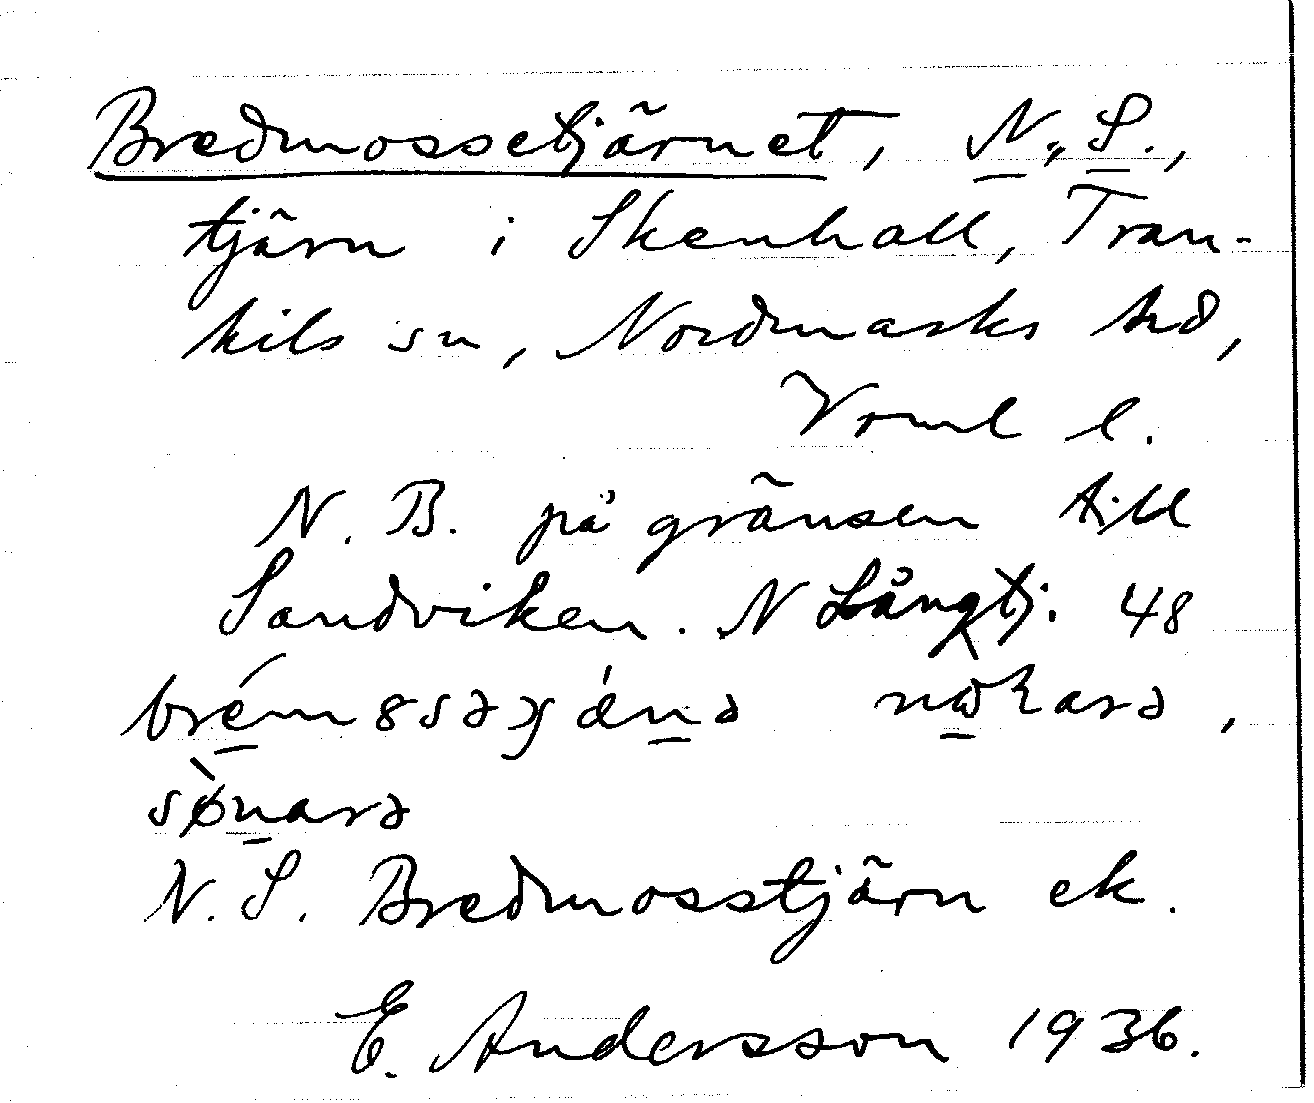 Bredmossetjärnet, N., S.,
tjärn i Skenhall, Tran-
kils sn, Nordmarks hd,
Vrml l.
N. B. på gränsen till
Sandviken. N Långtj. 48
N. S. Bredmosstjärn ek.
E. Andersson 1936.